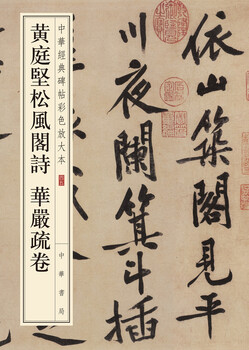 中華經典碑帖彩色放大本
黄庭堅松風閣詩 華嚴疏卷
中華書局
依山築閣見平
川夜闌箕斗插